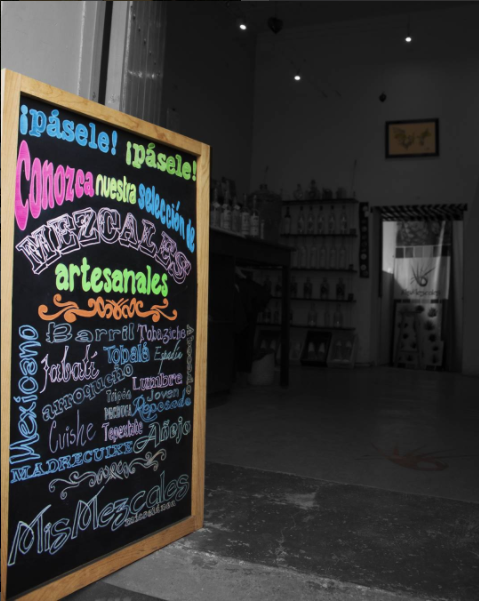 ¡pásele! ¡pásele!
Conozca nuestra selección de
MEZCALES
artesanales
Mexicano
Barril Tobaziche
Jabalí Tobalá Espadín
arroqueño Lumbre
Joven
Reposado
Cuishe Tepeztate Añejo
MADRECUIXE
Mis Mezcales